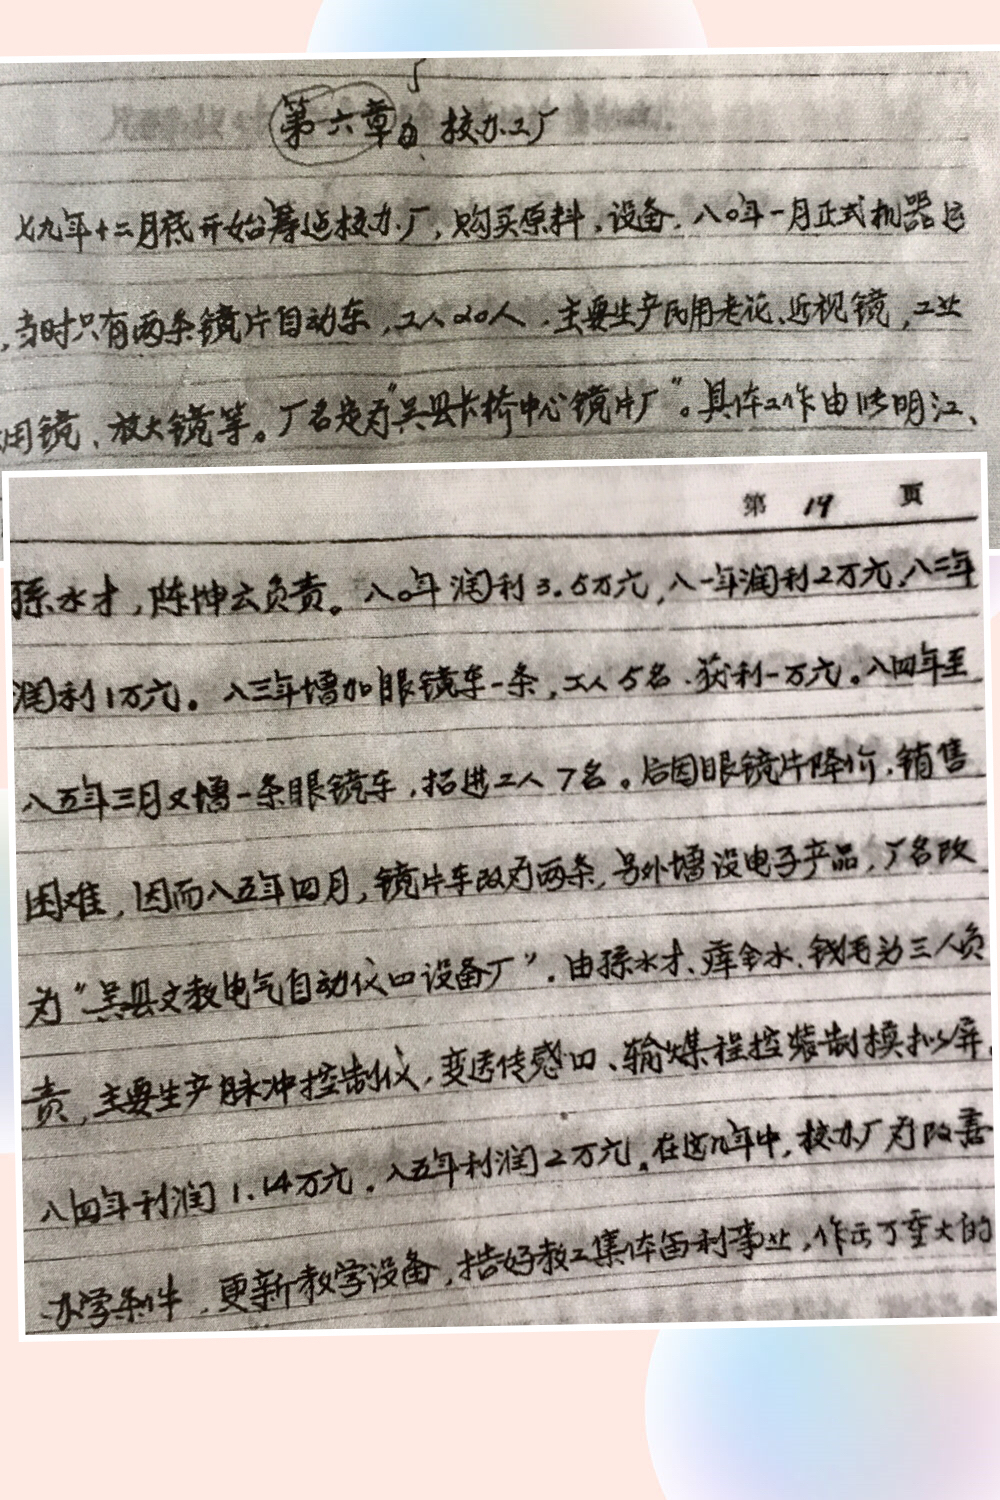 第六章 校办工厂
七九年十二月底开始筹边校办厂,购买原料、设备.八〇年一月正式机器运
,当时只有两条镜片自动车,工人20人.主要生产民用老花、近视镜,工业
用镜、放大镜等。厂名定为"吴县长桥中心镜片厂"。具体工作由 明江、
第 19 页
孫水才,陈坤云负责。八〇年润利3.5万元,八一年润利2万元,八二年
润利1万元。八三年增加眼镜车一条,工人5名.获利一万元。八四年至
八五年三月又增一条眼镜车,招进工人7名。后因眼镜片降价,销售
困难,因而八五年四月,镜片车改为两条,另外增设电子产品,厂名改
为"吴县文教电气自动仪口设备厂".由孫水才、 金水、钱毛 三人负
责,主要生产脉冲控制仪,变送传感口、输煤程控装制模拟屏.
八四年利润1.14万元.八五年利润2万元。在这几年中,校办厂为改善
办学条件,更新教学设备,搞好教工集体留利事业,作云了重大的